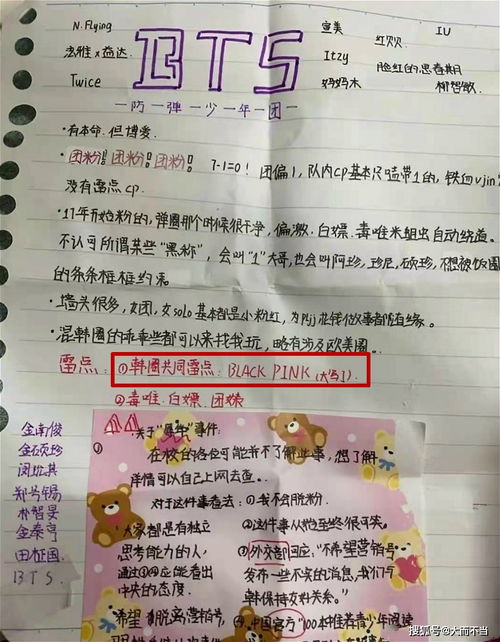 N.Flying
宣美
IU
红贝贝
泫雅x益达
BTS
Itzy
脸红的思春期
Twice
妈妈木
柳智敏
一防一弹一少一年一团一
·有本命.但博爱.
·团粉!团粉!团粉! 7-1=0! 团偏1, 队内cp基本只嗑带1的, 铁血vjin
没有雷点cp.
·17年开始粉的, 弹圈那个时候很干净, 偏激.白嫖.毒唯米姐出自动绕道.
不认可所谓某些"黑称", 会叫"1"大哥,也会叫阿珍, 珍尼, 硕珍, 不想被饭圈
的条条框框约束.
·墙头很多, 女团, 女solo基本都是小粉红, 为jjj花钱做事都随缘.
·混韩圈的乖乖些都可以来找我玩, 略有涉及欧美圈.
雷点: ①韩圈共同雷点: BLACK PINK (大写I).
②毒唯.白嫖.团嫁
金南俊
金硕珍
闵玧其
郑号锡
朴智旻
金泰亨
田柾国
BTS
关于"犀牛"事件:
①在校的各位可能并不了解些事, 想了解
详情可以自己上网去查.
对于这件事看法: ①我不会脱粉.
大家都是有独立
思考能力的人,
通过③④应能看出
中央的态度.
②这件事从始至终很可笑.
③外交部回应: "不希望营销号
发布一些不实的消息, 我们与
韩保持友好关系."
希望 脱离营销号,
④中国官方"100种推荐青少年阅读
搜狐号@大而不当